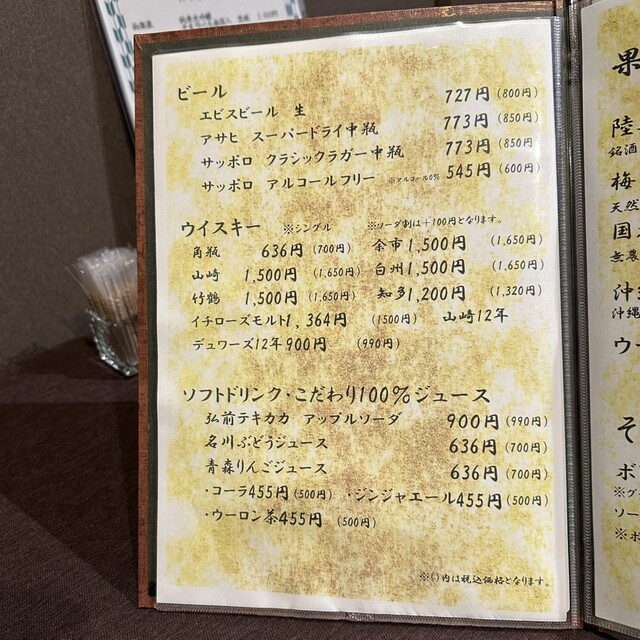 ビール
エビスビール 生 727円 (800円)
アサヒ スーパードライ中瓶 773円 (850円)
サッポロ クラシックラガー中瓶 773円 (850円
サッポロ アルコールフリー ※アルコール0% 545円 (600円)
ウイスキー ※シングル ※ソーダ割は+100円となります。
角瓶 636円 (700円) 余市 1,500円 (1,650円)
山崎 1,500円 (1,650円) 白州 1,500円 (1,650円)
竹鶴 1,500円 (1,650円) 知多 1,200円 (1,320円)
イチローズモルト 1,364円 (1500円) 山崎12年
デュワーズ12年 900円 (990円)
ソフトドリンク・こだわり100%ジュース
弘前テキカカ アップルソーダ 900円 (990円)
名川ぶどうジュース 636円 (700円)
青森りんごジュース 636円 (700円)
・コーラ455円 (500円) ・ジンジャエール455円 (500円)
・ウーロン茶455円 (500円)
※()内は税込価格となります。
果
陸
銘酒
梅
天然
国
無農
沖縄
沖縄
ウ
そ
ボ
※グ
ソー
※ボ